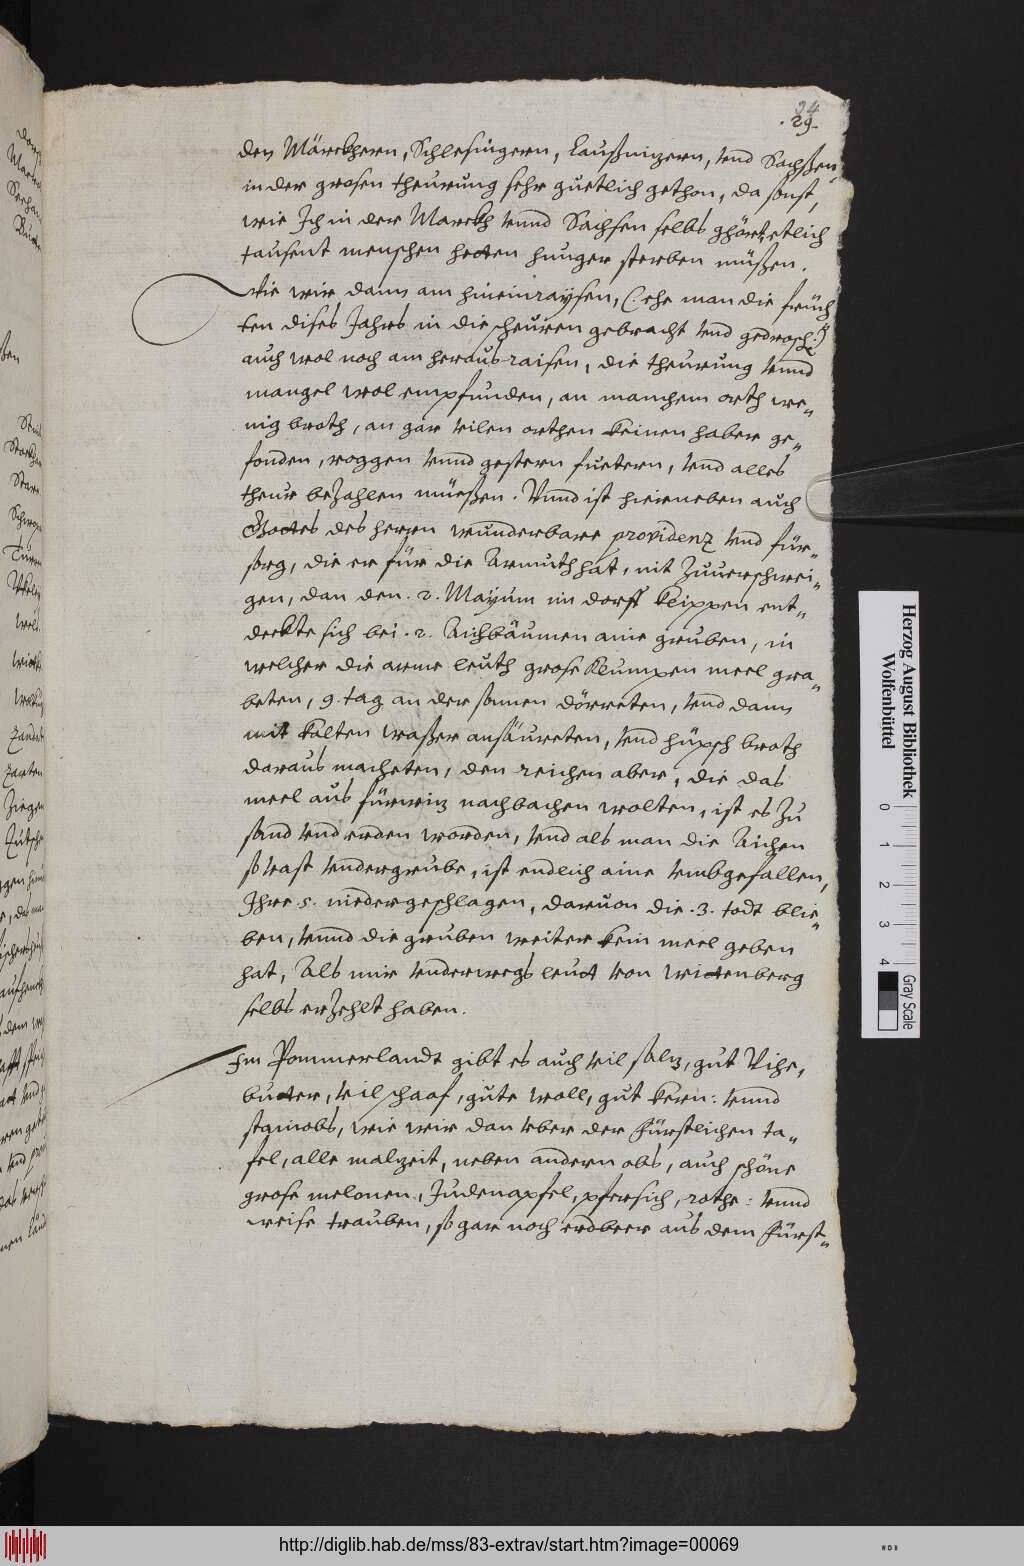 34
.29.
den Märckhern, Schlesingern, Laußnizern, vnd Sachßen,
in der grosen theurung sehr guetlich gethon, da sonst,
wie Ich in der Marckh vnnd Sachsen selbs ghört, etlich
tausent menschen hetten hunger sterben müßen.
Wie wir dann am hineinraysen, (: ehe man die früch
ten dises Jahrs in die scheuren gebracht vnd gedrosch:)
auch wol noch am herausraisen, die theurung vnnd
mangel wol empfunden, an manchem orth we„
nig broth, an gar vilen orthen keinen haber ge„
fonden, roggen vnnd gestern fuetern, vnd alles
theur bezahlen müeßen. Vnnd ist hierneben auch
Gottes des herrn wunderbare providenz vnd für„
sorg, die er für die Armuth hat, nit zuuerschwei„
gen, dan den .2. Mayum im dorff Klippen ent„
deckte sich bei .2. Aichbäumen aine gruben, in
welcher die arme leuth grose klumpen meel gra„
beten, 9. tag an der sonnen dörreten, vnd dann
mit kalten waßer ansäureten, vnd hüpsch broth
daraus macheten, den reichen aber, die das
meel aus fürwiz nachbachen wolten, ist es zu
sand vnd erden worden, vnd als man die Aichen
so vast vndergrube, ist endlich aine vmbgefallen,
Ihre .5. nidergeschlagen, daruon die .3. todt blie„
ben, vnnd die gruben weiter kein meel geben
hat, Als mir vnderwegs leut von Wittenberg
selbs erzehlt haben.
Im Pommerlandt gibt es auch vil salz, gut Vihe,
butter, vil schaaf, gute woll, gut kern: vnnd
stainobs, wie wir dan vber der Fürstlichen ta„
fel, alle malzeit, neben andern obs, auch schöne
grose melonen, Judenapfel, pfersich, rothe: vnnd
weise trauben, so gar noch erdbeer aus dem Fürst„
Herzog August Bibliothek
Wolfenbüttel
0 1 2 3 4
Gray Scale
http://diglib.hab.de/mss/83-extrav/start.htm?image=00069